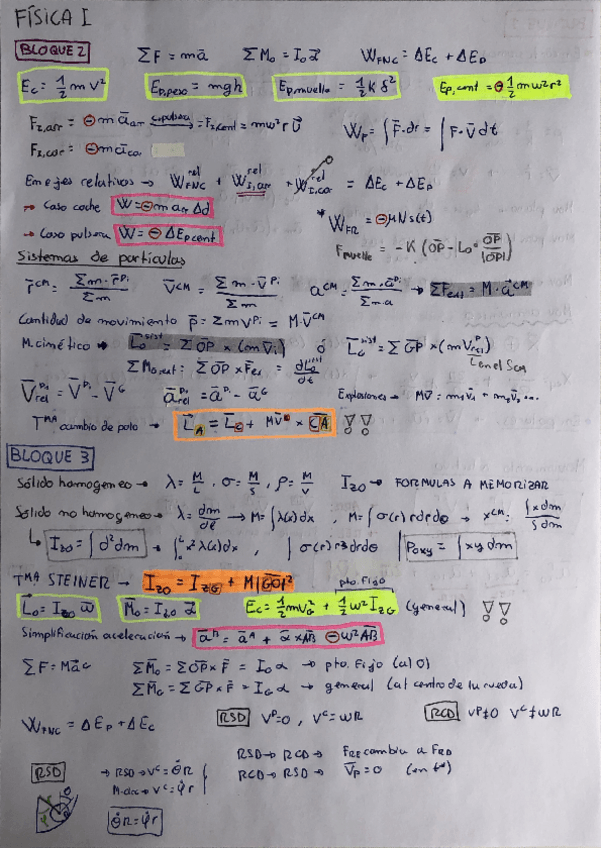 FÍSICA I
BLOQUE 2 ΣF = ma̅ ΣM₀ = I₀α̅ W_FNC = ΔEc + ΔEp
Ec = 1/2 m v² Ep,peso = mgh Ep,muelle = 1/2 K δ² Ep,cent = ⊖ 1/2 mω²r²
F_I,arr = ⊖ m a̅arr → F_I,cent = mω²r U̅ Wp = ∫F̅·dr = ∫F·V̅ dt
F_I,cor = ⊖ m a̅cor
En ejes relativos → W^rel_FNC + W^rel_I,arr + W^rel_I,cor = ΔEc + ΔEp
→ Caso coche W = ⊖ m aarr Δd * W_FR = ⊖ μ N s(t)
→ Caso pulsera W = ⊖ ΔEpcent F muelle = -K (OP̅ - L₀ · OP̅/|OP|)
Sistemas de partículas
r̅^CM = Σm·r̅^Pi / Σm V̅^CM = Σm·V̅^Pi / Σm a^CM = Σm·a̅^Pi / Σm·a → ΣFext = M·a̅^CM
Cantidad de movimiento p̅ = ΣmV^Pi = M·V̅^CM
M. cinético → L̅₀^sist = ΣOP̅ × (mV̅i) ó L̅G^sist = ΣGP̅ × (mV^P_rel)
ΣM₀,ext: ΣOP̅ × Fex = dL₀^sist/dt en el SCM
V̅^Pi_rel = V̅^Pi - V̅^G a̅^Pi_rel = a̅^Pi - a̅^G Explosiones → MV̅ = m₁V̅₁ + m₂V̅₂...
TMA cambio de polo → L̅A = L̅C + MV̅^G × CA̅ !!
BLOQUE 3
Sólido homogeneo → λ = M/L, σ = M/S, ρ = M/V I_ZO → FORMULAS A MEMORIZAR
Sólido no homogeneo → λ = dm/dl → M = ∫λ(x)dx, M = ∫σ(r) r dr dθ → x^CM: ∫x dm / ∫dm
↳ I_ZO = ∫d² dm → ∫₀^L x² λ(x)dx, ∫σ(r) r³ dr dθ P_OXY = ∫xy dm
TMA STEINER → I_ZO = I_ZG + M|GO|² pto. Fijo
L̅₀ = I_ZO ω̅ M̅₀ = I_ZO α̅ Ec = 1/2 mV_G² + 1/2 ω² I_ZG (general) !!
Simplificación aceleración → a̅^B = a̅^A + α̅ × AB̅ ⊖ ω² AB̅
ΣF = Ma̅^G ΣM̅₀ = ΣOP̅ × F̅ = I₀ α → pto. Fijo (al O)
ΣM̅G = ΣGP̅ × F̅ = I_G α → general (al centro de la rueda)
W_FNC = ΔEp + ΔEc RSD V^P = 0, V^C = ωR RCD V^P ≠ 0 V^C ≠ ωR
RSD → RCD → FRE cambia a FRD
RSD → RSD → V^C = θ̇R RCD → RSD → V̅p = 0 (en t*)
→ V^C = φ̇r
θ̇R = φ̇r